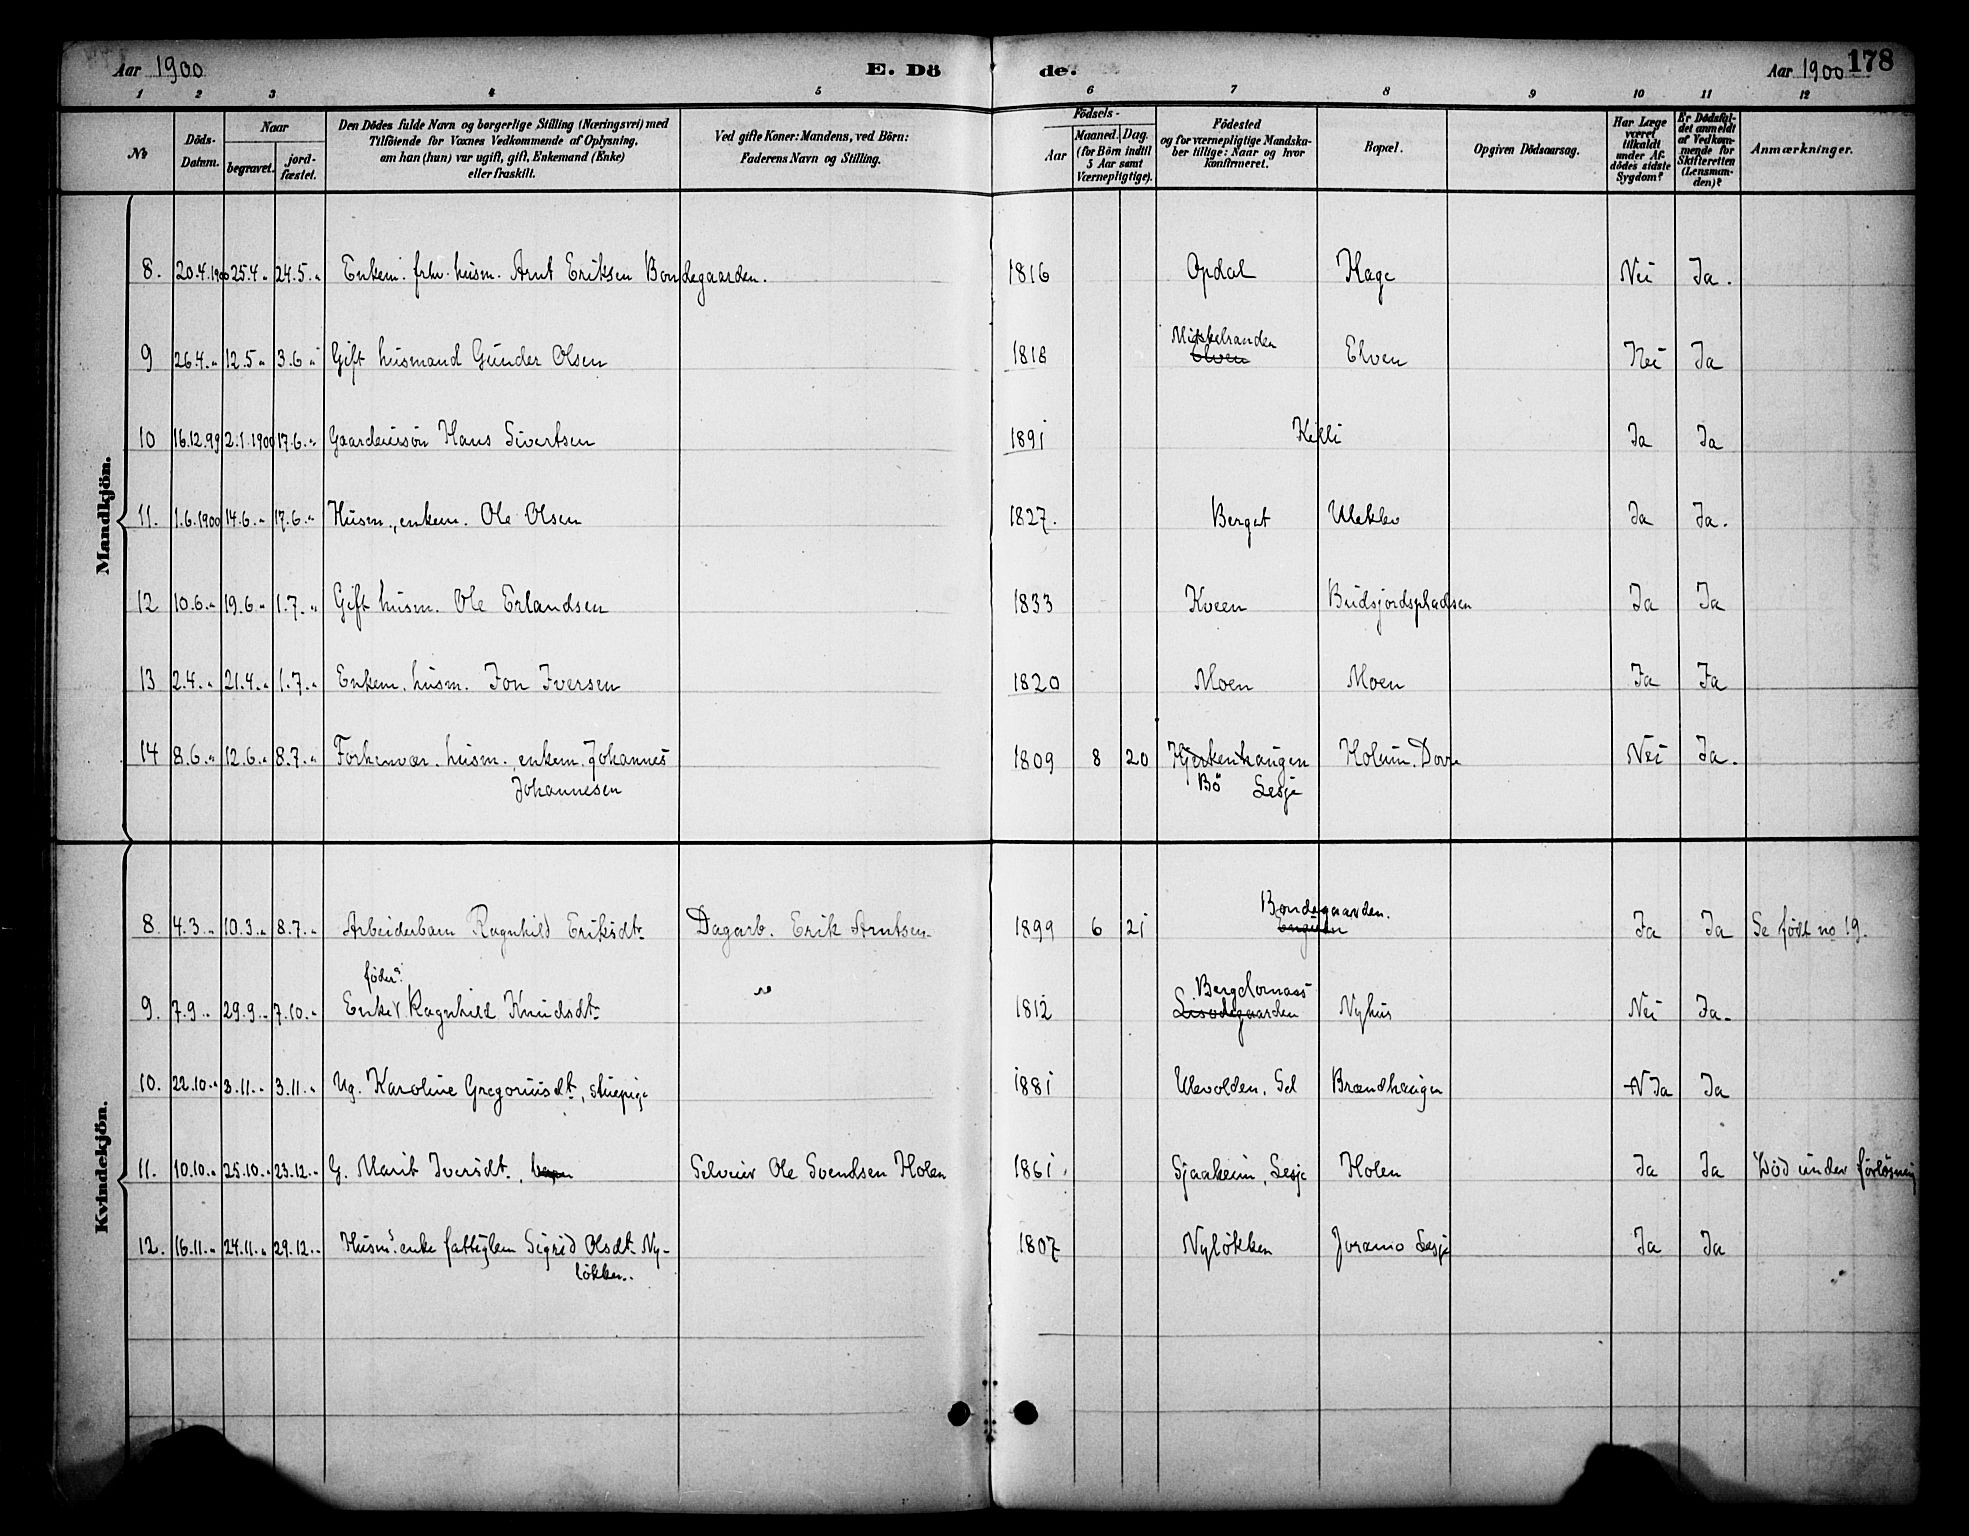 Aar 1900 E. Dö de. Aar 1900 178
1 2 3 4 5 6 7 8 9 10 11 12
No Döds-Datum. Naar begravet. jord-fæstet. Den Dödes fulde Navn og borgerlige Stilling (Næringsvei) med Tilföiende for Voxnes Vedkommende af Oplysning, om han (hun) var ugift, gift, Enkemand (Enke) eller fraskilt. Ved gifte Koner: Mandens, ved Börn: Faderens Navn og Stilling. Födsels- Aar Maaned. Dag. (for Börn indtil 5 Aar samt Værnepligtige). Födested og for værnepligtige Mandskaber tillige: Naar og hvor konfirmeret. Bopæl. Opgiven Dödsaarsag. Har Læge været tilkaldt under Afdödes sidste Sygdom? Er Dödsfaldet anmeldt af Vedkommende for Skifteretten (Lensmanden)? Anmærkninger.
Mandkjön.
8. 20.4.1900 25.4 „ 24.5. „ Enkem. frhv. husm. Arnt Eriksen Bondegaarden. 1816 Opdal Hage Nei Ja.
9 26.4. „ 12.5 „ 3.6 „ Gift husmand Gunder Olsen 1818 Elven Elven Nei Ja
10 16.12.99 2.1.1900 17.6. „ Gaardeiersøn Hans Sivertsen 1891 Ja Ja
11. 1.6.1900 14.6. „ 17.6. „ Husm., enkem. Ole Olsen 1827. Berget Uleklev Ja Ja.
12 10.6. „ 19.6. „ 1.7. „ Gift husm. Ole Erlandsen 1833 Kveen Budsjordspladsen Ja Ja
13 2.4. „ 21.4. „ 1.7. „ Enkem. husm. Jon Iversen 1820 Moen Moen Ja Ja
14 8.6. „ 12.6. „ 8.7. „ Forhenvær. husm., enkem. Johannes 1809 8 20 Hjerkenhaugen Holum. Dovre Nei Ja.
Johannesen Bö Lesje
Kvindekjön.
8. 4.3. „ 10.3. „ 8.7. „ Arbeiderbarn Ragnhild Eriksdt. Dagarb. Erik Arntsen 1899 6 21 Bondegaarden. Ja Ja Se født no 19.
9. 7.9 „ 29.9. „ 7.10. „ Enke Ragnhild Knudsdt. „ 1812 Nyhus Nei Ja.
10. 22.10. „ 3.11. „ 3.11. „ Ug. Karoline Gregoriusdt., stuepige 1881 Ulevolden, Sel Brændhaugen N Ja Ja
11. 10.10. „ 25.10. „ 23.12. „ G. Marit Iversdt., Selveier Ole Svendsen Holen 1861. Sjaaheim, Lesje Holen Ja Ja Död under forløsning
12. 16.11. „ 24.11. „ 29.12. „ Husm.s enke fattiglem Sigrid Olsdt. Ny- 1807 Nyløkken Joramo Lesje Ja Ja
løkken..